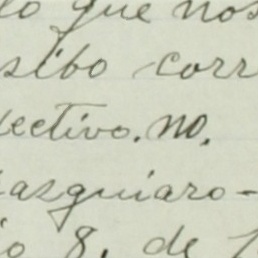 lo que nos
sibo corr
pectivo. no.
iasguiaro-
io 8. de 1